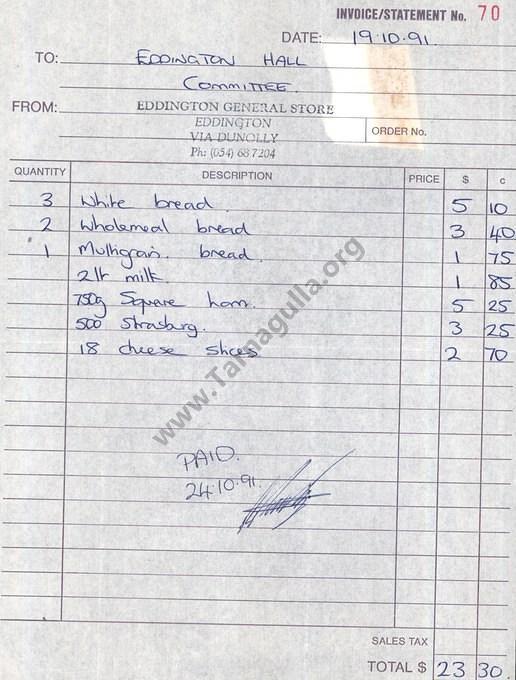 INVOICE/STATEMENT No. 70
DATE: 19.10.91.
TO: EDDINGTON HALL
COMMITTEE.
FROM: EDDINGTON GENERAL STORE
EDDINGTON
VIA DUNOLLY
Ph: (054) 68 7204
ORDER No.
QUANTITY DESCRIPTION PRICE $ c
3 White bread. 5 10
2 Wholemeal bread 3 40
1 Multigrain bread. 1 75
2lt milk. 1 85
750g Square ham. 5 25
500 Strasburg. 3 25
18 cheese slices 2 70
www.Tarnagulla.org
PAID.
24.10.91.
SALES TAX
TOTAL $ 23 30